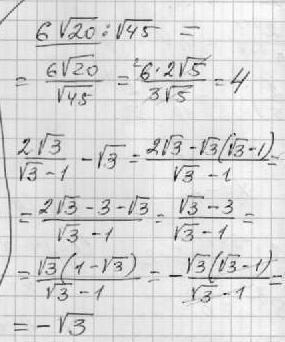 6√20 : √45 =
= 6√20/√45 = 6·2√5/3√5 = 4
2√3/(√3 - 1) - √3 = (2√3 - √3(√3 - 1))/(√3 - 1) =
= (2√3 - 3 - √3)/(√3 - 1) = (√3 - 3)/(√3 - 1) =
= √3(1 - √3)/(√3 - 1) = -√3(√3 - 1)/(√3 - 1) =
= -√3